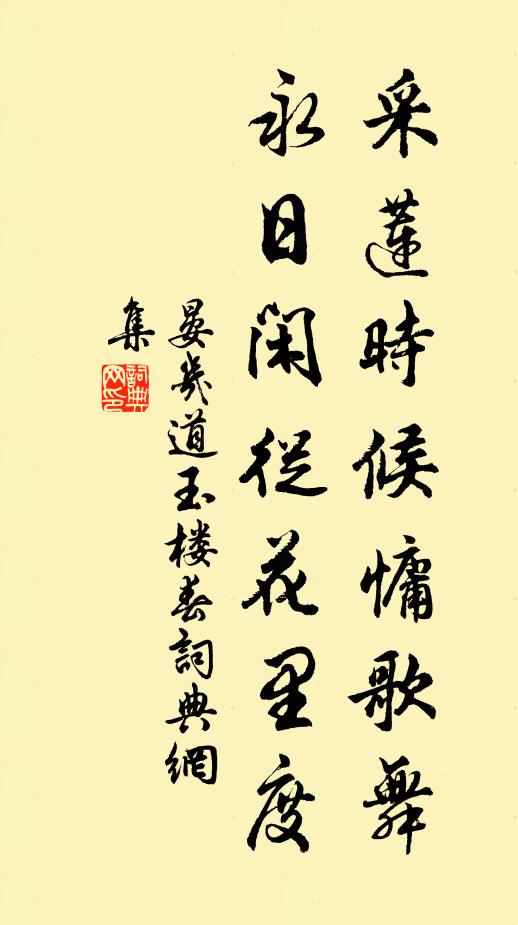 采蓮時候慵歌舞
永日閑從花里度
晏幾道玉楼春詞典網
集
詞典网印